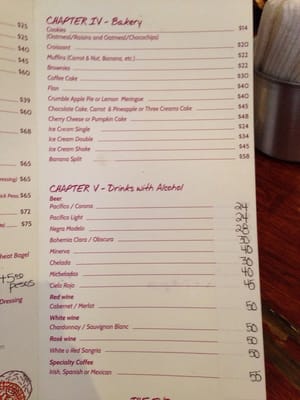 $25
$25
$40
$45
$45
$60
$39
$60
$68
$65
ressing) $65
$65
$72
$75
heat Bagel
+5.00
pesos
Dressing
CHAPTER IV - Bakery
Cookies $14
(Oatmeal/Raisins and Oatmeal/Chocochips)
Croissant $20
Muffins (Carrot & Nut, Banana, etc.) $22
Brownies $22
Coffee Cake $30
Flan $40
Crumble Apple Pie or Lemon Meringue $40
Chocolate Cake, Carrot & Pineapple or Three Creams Cake $45
Cherry Cheese or Pumpkin Cake $48
Ice Cream Single $24
Ice Cream Double $34
Ice Cream Shake $45
Banana Split $58
CHAPTER V - Drinks with Alcohol
Beer
Pacifico / Corona 24
Pacifico Light 24
Negra Modelo 28
Bohemia Clara / Obscura
Minerva
Chelada 30
Micheladas 40
Cielo Rojo 45
Red wine
Cabernet / Merlot 50
White wine
Chardonnay / Sauvignon Blanc 50
Rosé wine 50
White o Red Sangria 50
Specialty Coffee
Irish, Spanish or Mexican 55